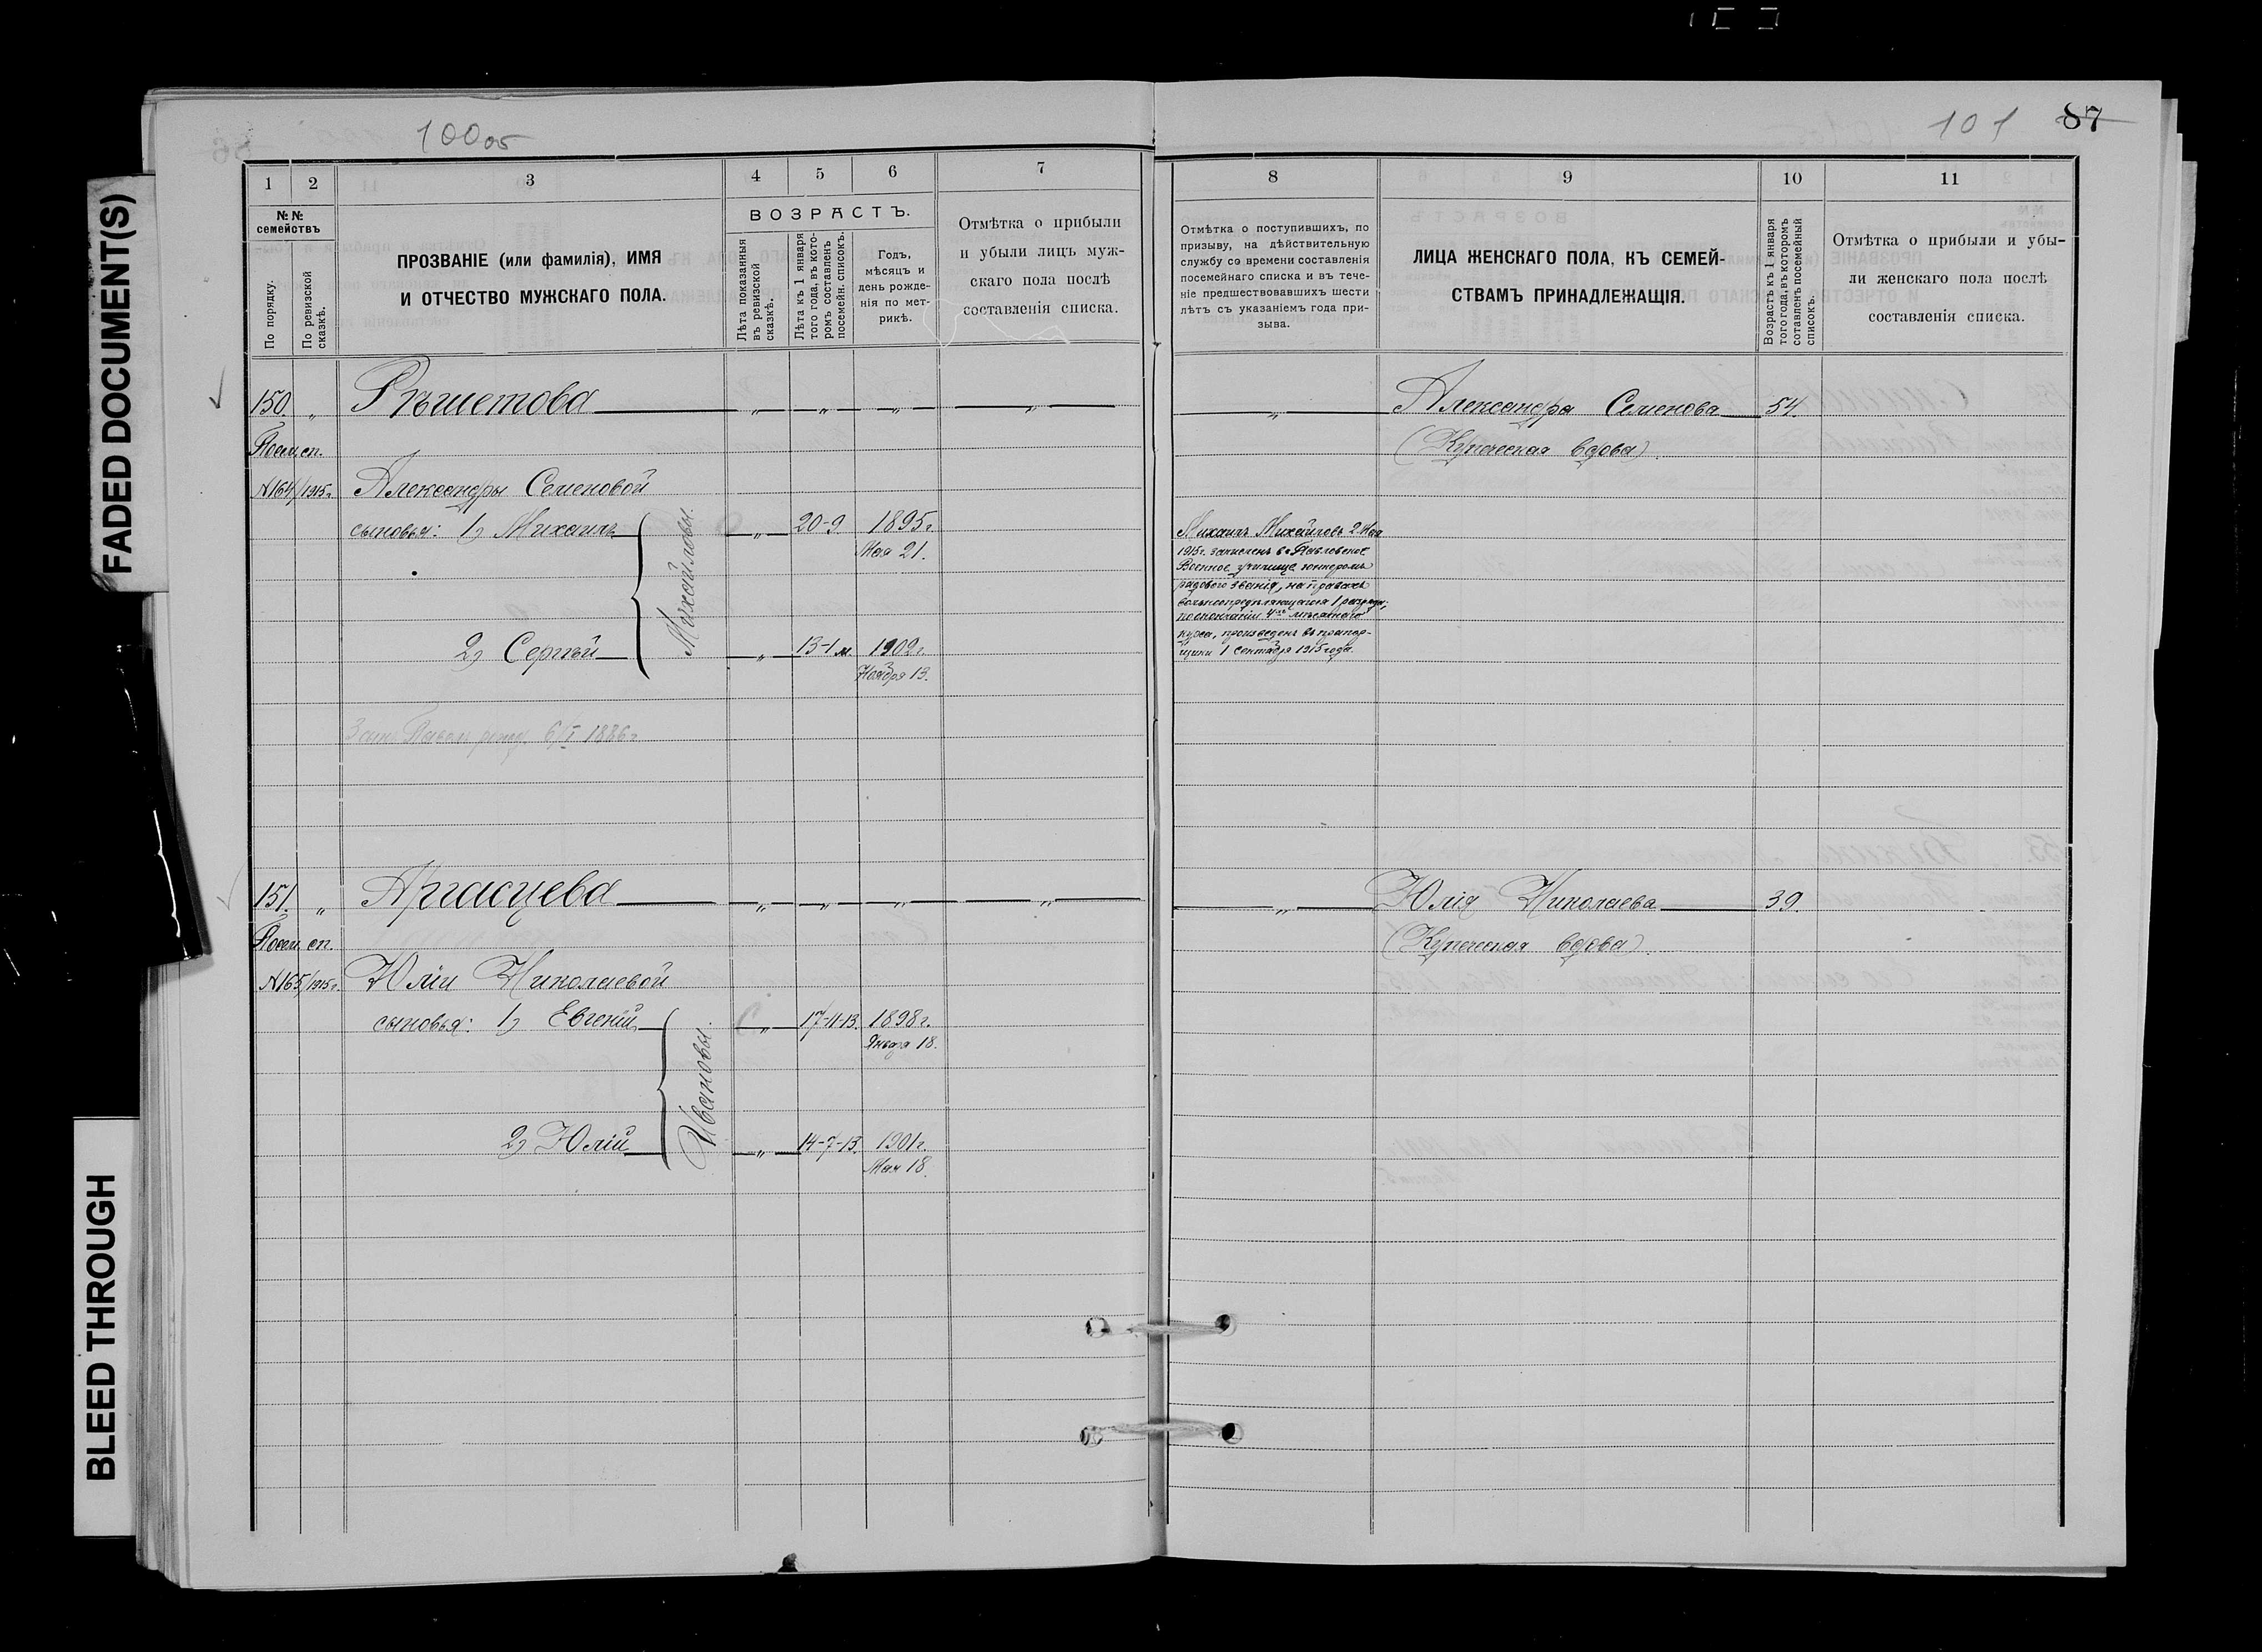 FADED DOCUMENT(S)
BLEED THROUGH
100об
1 2 3 4 5 6 7
№№ семействъ
По порядку.
По ревизской сказкѣ.
ПРОЗВАНІЕ (или фамилія), ИМЯ
И ОТЧЕСТВО МУЖСКАГО ПОЛА.
ВОЗРАСТЪ.
Лѣта показанныя
въ ревизской
сказкѣ.
Лѣта къ 1 января
того года, въ кото-
ромъ составленъ
посемейн. списокъ.
Годъ,
мѣсяцъ и
день рожде-
нія по мет-
рикѣ.
Отмѣтка о прибыли
и убыли лицъ муж-
скаго пола послѣ
составленія списка.
150. „ Рѣшетова „ „ „ „
Посем. сп.
№164/1915г. Александры Семеновой
сыновья: 1) Михаилъ „ 20-9 1895г.
Мая 21.
Михайловы.
2) Сергѣй „ 13-1 м. 1902г.
Ноября 13.
3 сынъ Павелъ 6/I 1886г
151. „ Аргасцева „ „ „ „
Посем. сп.
№165/1915г. Юліи Николаевой
сыновья: 1) Евгеній „ 17-11-13. 1898г.
Января 18.
Ивановы.
2) Юлій „ 14-7-13. 1901г.
Мая 18.
101 87
8 9 10 11
Отмѣтка о поступившихъ, по
призыву, на дѣйствительную
службу со времени составленія
посемейнаго списка и въ тече-
ніе предшествовавшихъ шести
лѣтъ съ указаніемъ года при-
зыва.
ЛИЦА ЖЕНСКАГО ПОЛА, КЪ СЕМЕЙ-
СТВАМЪ ПРИНАДЛЕЖАЩІЯ.
Возрастъ къ 1 января
того года, въ которомъ
сотавленъ посемейный
списокъ.
Отмѣтка о прибыли и убы-
ли женскаго пола послѣ
составленія списка.
„ Александра Семенова 54.
(Купеческая вдова).
Михаилъ Михайловъ 2 Мая
1915г. зачисленъ въ Павловское
Военное училище юнкеромъ
рядового званія, на правахъ
вольноопредѣляющагося 1 разряда;
по окончаніи 4хъ мѣсячнаго
курса, произведенъ въ прапор-
щики 1 Сентября 1915 года.
„ Юлія Николаева 39.
(Купеческая вдова).